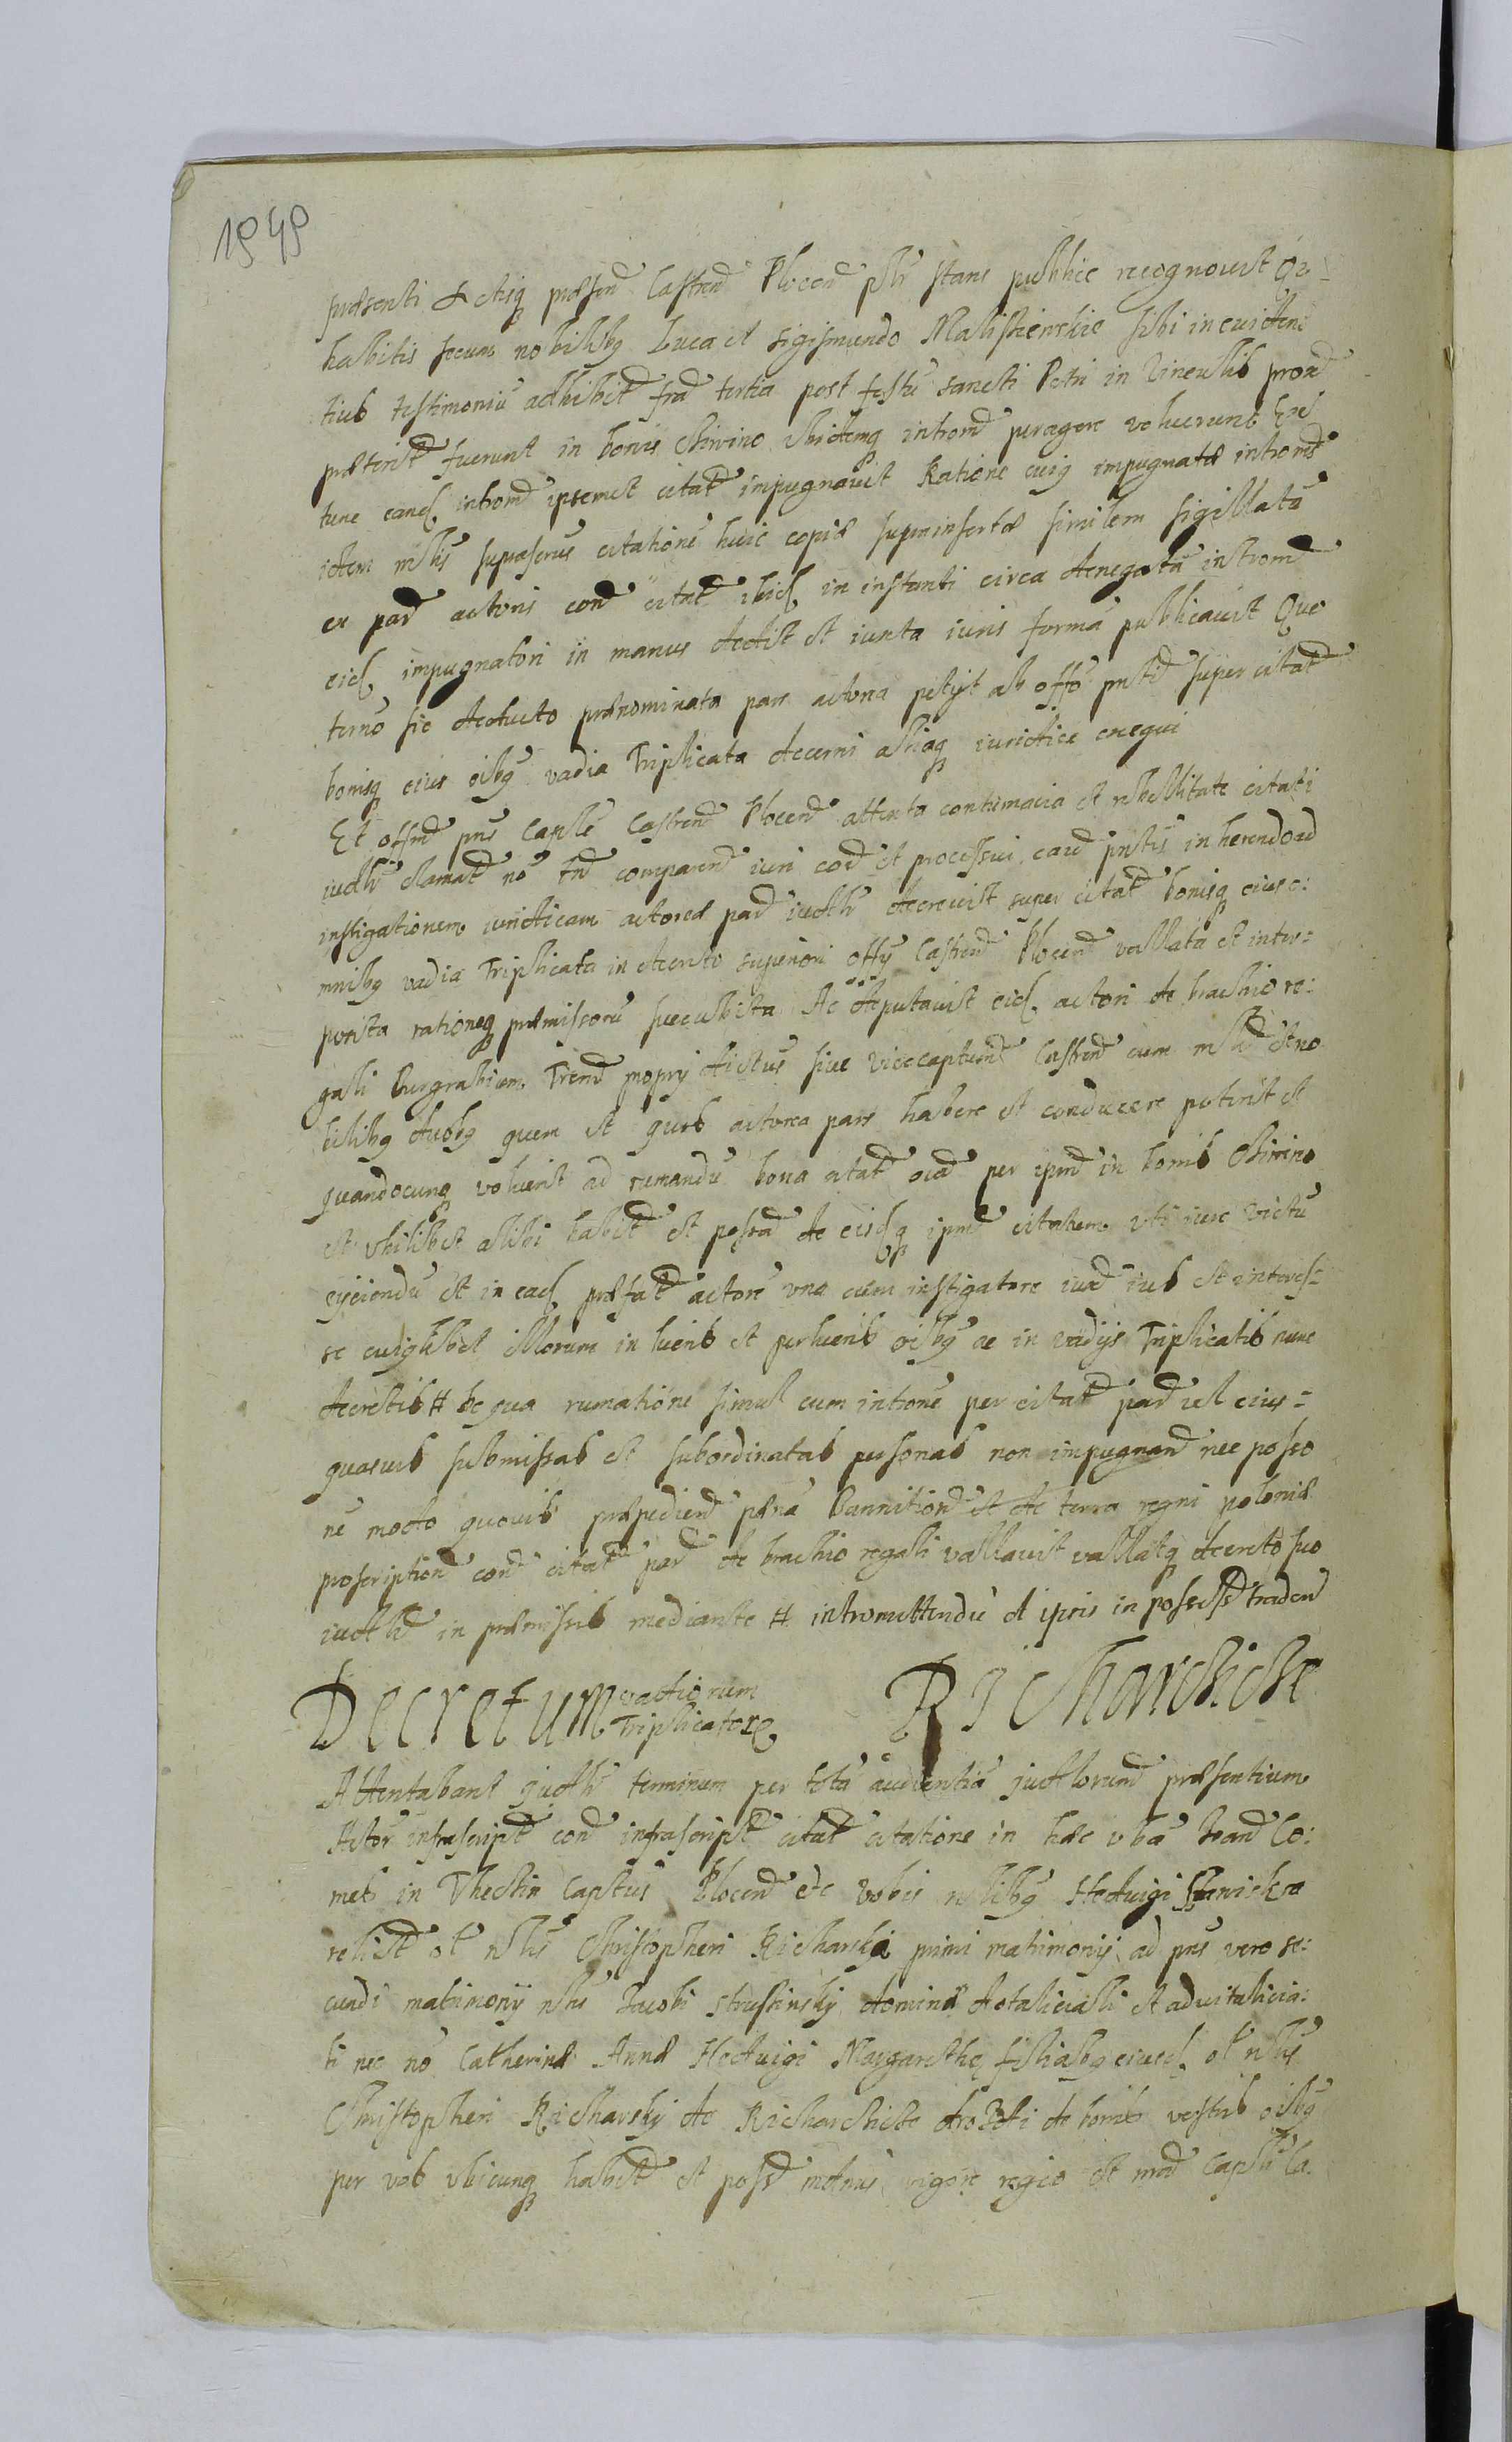 1949
præsenti Actisq præsen Castren Plocen plr stans publice recognovit Qr
habitis secum nobilibg Luca et Sigismundo Maliszewskie sibi in eviden
tius testimoniu adhibit fra tertia post festu sancti Petri in Vinculis prox
præterit fuerunt in bonis Chirino ibidemq introm peragere voluerunt Et
tunc eand introm ipsemet citat impugnavit Ratione cuig impugnatæ introm
idem nlis suprascrus citatione huic copiæ suprainsertæ similem sigillata
ex par actoris con citat ibid in instanti circa denegata introm
eid impugnatori in manus dedit et iuxta iuris forma publicavit Quo
termo sic deducto prænominata pars actorea petijt ab offo pnti super citat
bonisq eius oibg vadia Triplicata decerni aliaq iuridice exequi
Et offm pns Caple Castren Plocen attenta contumacia et rebellitate citati
iudlr clamat no tn comparen iuri cod et processui caus pntis inherendo ad
instigationem iuridicam actoreæ par iudlr decrevit super citat bonisq eius o:
mnibg vadia Triplicata in decreto superiori offy Castren Plocen vallata et inter:
posita rationeq præmissoru succubita Ac deputavit eid actori de brachio re:
gali Burgrabium Terrm propry dictus sive Vicecaptum Castren cum nli et no
bilibg duobg quem et quos actorea pars habere et conducere poterit et
quandocunq voluerit ad rumandu bona citat oia per ipm in bonis Chirino
et ubilibet alibi habit et possa de eisdq ipm citatum uti iure victu
eijciendu et in ead præfat actore una cum instigatore iux ius et interes=
se cuiglibet illorum in lucris et perlucris oibg ac in vadijs Triplicatis nunc
decretis # De qua rumatione simul cum intione per citat par vel eius=
quasvis submissas et subordinatas personas non impugnan nec posse
ne modo quovis præpedien pæna Bannition et de terra regni poloniæ
proscription con citat par de brachio regali vallavit vallatq decreto suo
iudli in præmissis mediante # intromittendu et ipsis in possess traden
Decretum vadiorum Triplicatorx Richarchicke
Attentabant judlr terminum per tota audientia judiciorum præsentium
Actor infrascript con infrascript citat citatione in hæc vba Joan Co:
mes in Thectin Captus Plocen etc Vobis nlibg Hedvigi
relict ol nlis Christopheri Richarski primi matrimonij ad pns vero se:
cundi matrimonij nlis Jacobi Strusinsky dominæ dotaliciali et advitalicia:
li nec no Catherinæ Annæ Hedvigi Margarethe filiabg eiusd ol nlis
Christopheri Richarsky de Richarchicke drozdi de bonis vestris oibg
per vos ubicunq habit et poss mdmus vigore regio et nro Capli Ca.